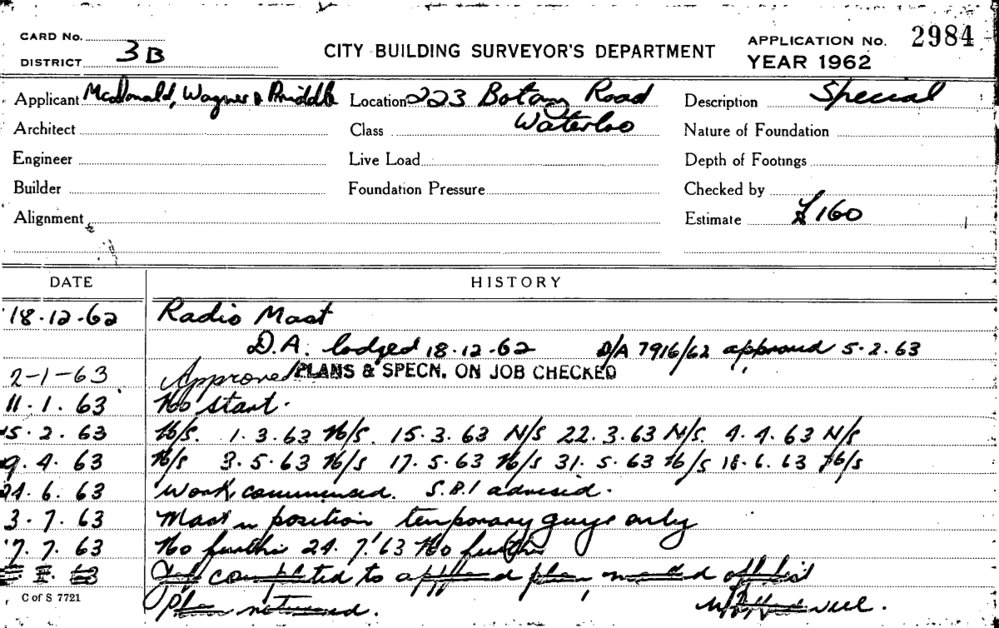 CARD No.
DISTRICT 3B
CITY BUILDING SURVEYOR'S DEPARTMENT
APPLICATION No. 2984
YEAR 1962
Applicant McDonald, Wagner & Priddle Location 223 Botany Road Description Special
Architect Class Waterloo Nature of Foundation
Engineer Live Load Depth of Footings
Builder Foundation Pressure Checked by
Alignment Estimate £160
DATE HISTORY
18.12.62 Radio Mast
D.A. lodged 18.12.62 D/A 7916/62 approved 5.2.63
2-1-63 Approved PLANS & SPECN. ON JOB CHECKED
11.1.63 No start.
15.2.63 N/S. 1.3.63 N/S. 15.3.63 N/S 22.3.63 N/S. 4.4.63 N/S
9.4.63 N/S 3.5.63 N/S 17.5.63 N/S 31.5.63 N/S 18.6.63 N/S
24.6.63 Work commenced. S.B.I advised.
3.7.63 Mast in position temporary guys only
7.7.63 No further 24.7.63 No further
completed to approved plan marked off list
Plan returned.
C of S 7721